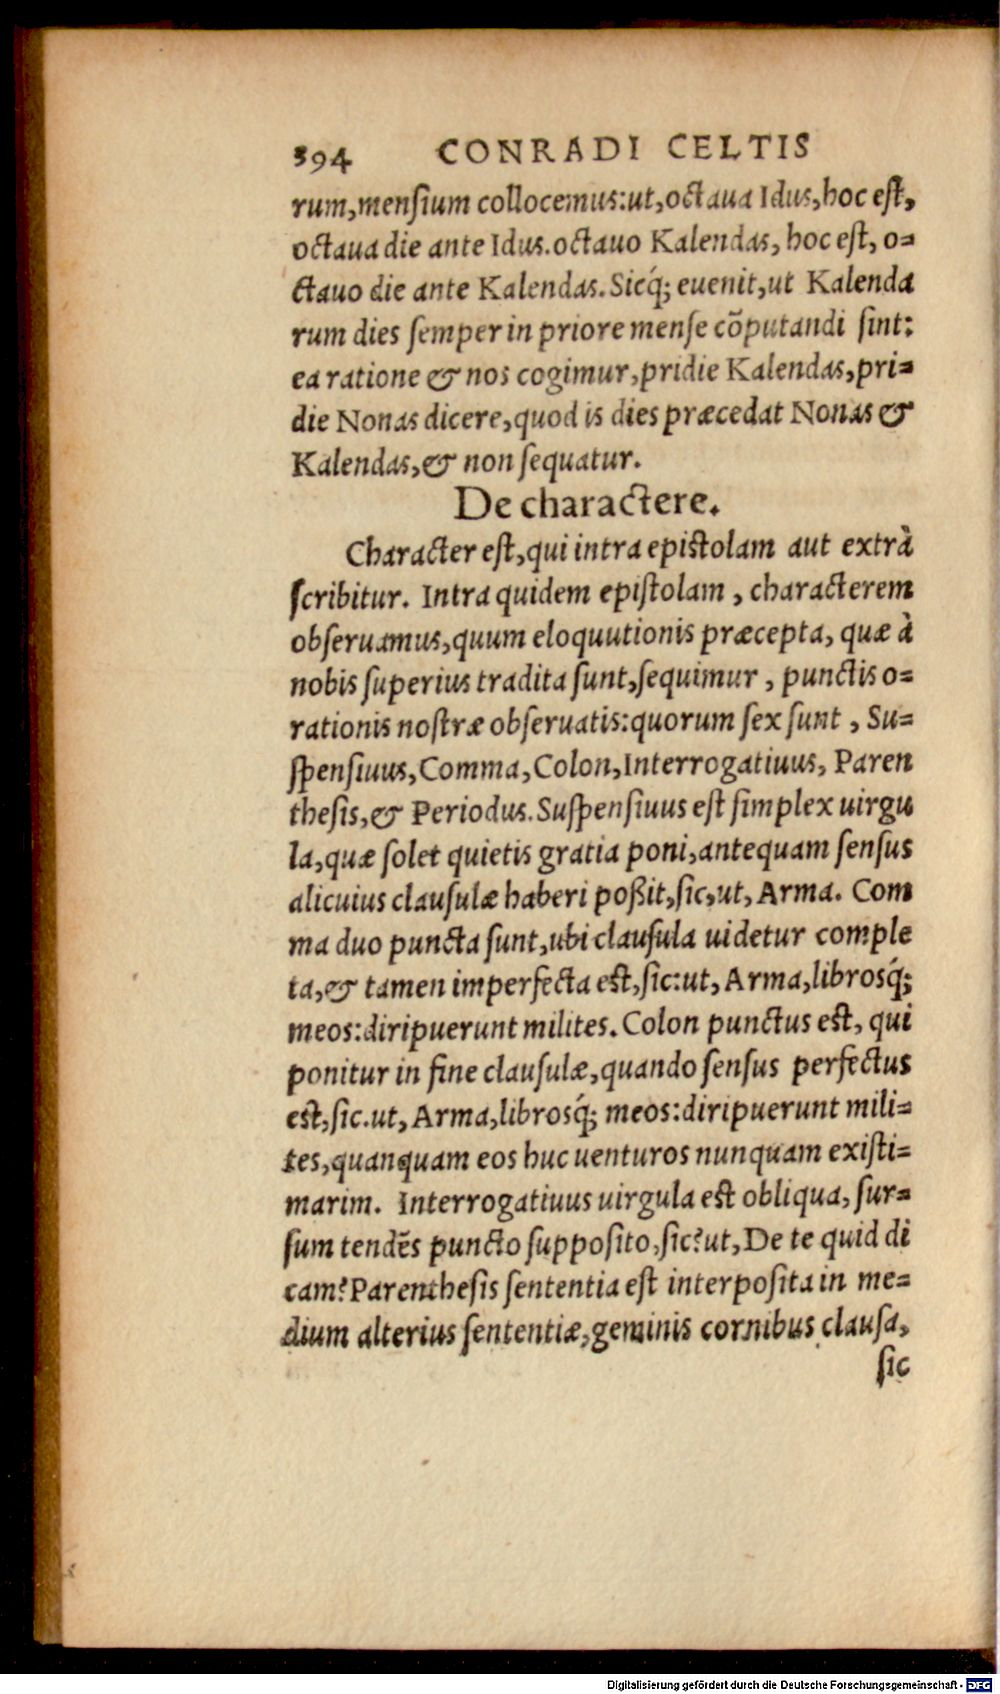 394 CONRADI CELTIS
rum,mensium collocemus:ut,octaua Idus,hoc est,
octaua die ante Idus.octauo Kalendas, hoc est, o=
ctauo die ante Kalendas. Sicq́; euenit,ut Kalenda
rum dies semper in priore mense cõputandi sint:
ea ratione & nos cogimur,pridie Kalendas,pri=
die Nonas dicere,quod is dies præcedat Nonas &
Kalendas,& non sequatur.
De charactere.
Character est,qui intra epistolam aut extrà
scribitur. Intra quidem epistolam, characterem
obseruamus,quum eloquutionis præcepta, quæ à
nobis superius tradita sunt,sequimur, punctis o=
rationis nostræ obseruatis:quorum sex sunt, Su=
spensiuus,Comma,Colon,Interrogatiuus, Paren
thesis,& Periodus.Suspensiuus est simplex uirgu
la,quæ solet quietis gratia poni,antequam sensus
alicuius clausulæ haberi poßit,sic,ut, Arma. Com
ma duo puncta sunt,ubi clausula uidetur comple
ta,& tamen imperfecta est,sic:ut, Arma,librosq́;
meos:diripuerunt milites. Colon punctus est, qui
ponitur in fine clausulæ,quando sensus perfectus
est,sic.ut, Arma,librosq́; meos:diripuerunt mili=
tes,quanquam eos huc uenturos nunquam existi=
marim. Interrogatiuus uirgula est obliqua, sur=
sum tendẽs puncto supposito,sic?ut, De te quid di
cam?Parenthesis sententia est interposita in me=
dium alterius sententiæ,geminis cornibus clausa,
sic
Digitalisierung gefördert durch die Deutsche Forschungsgemeinschaft - DFG